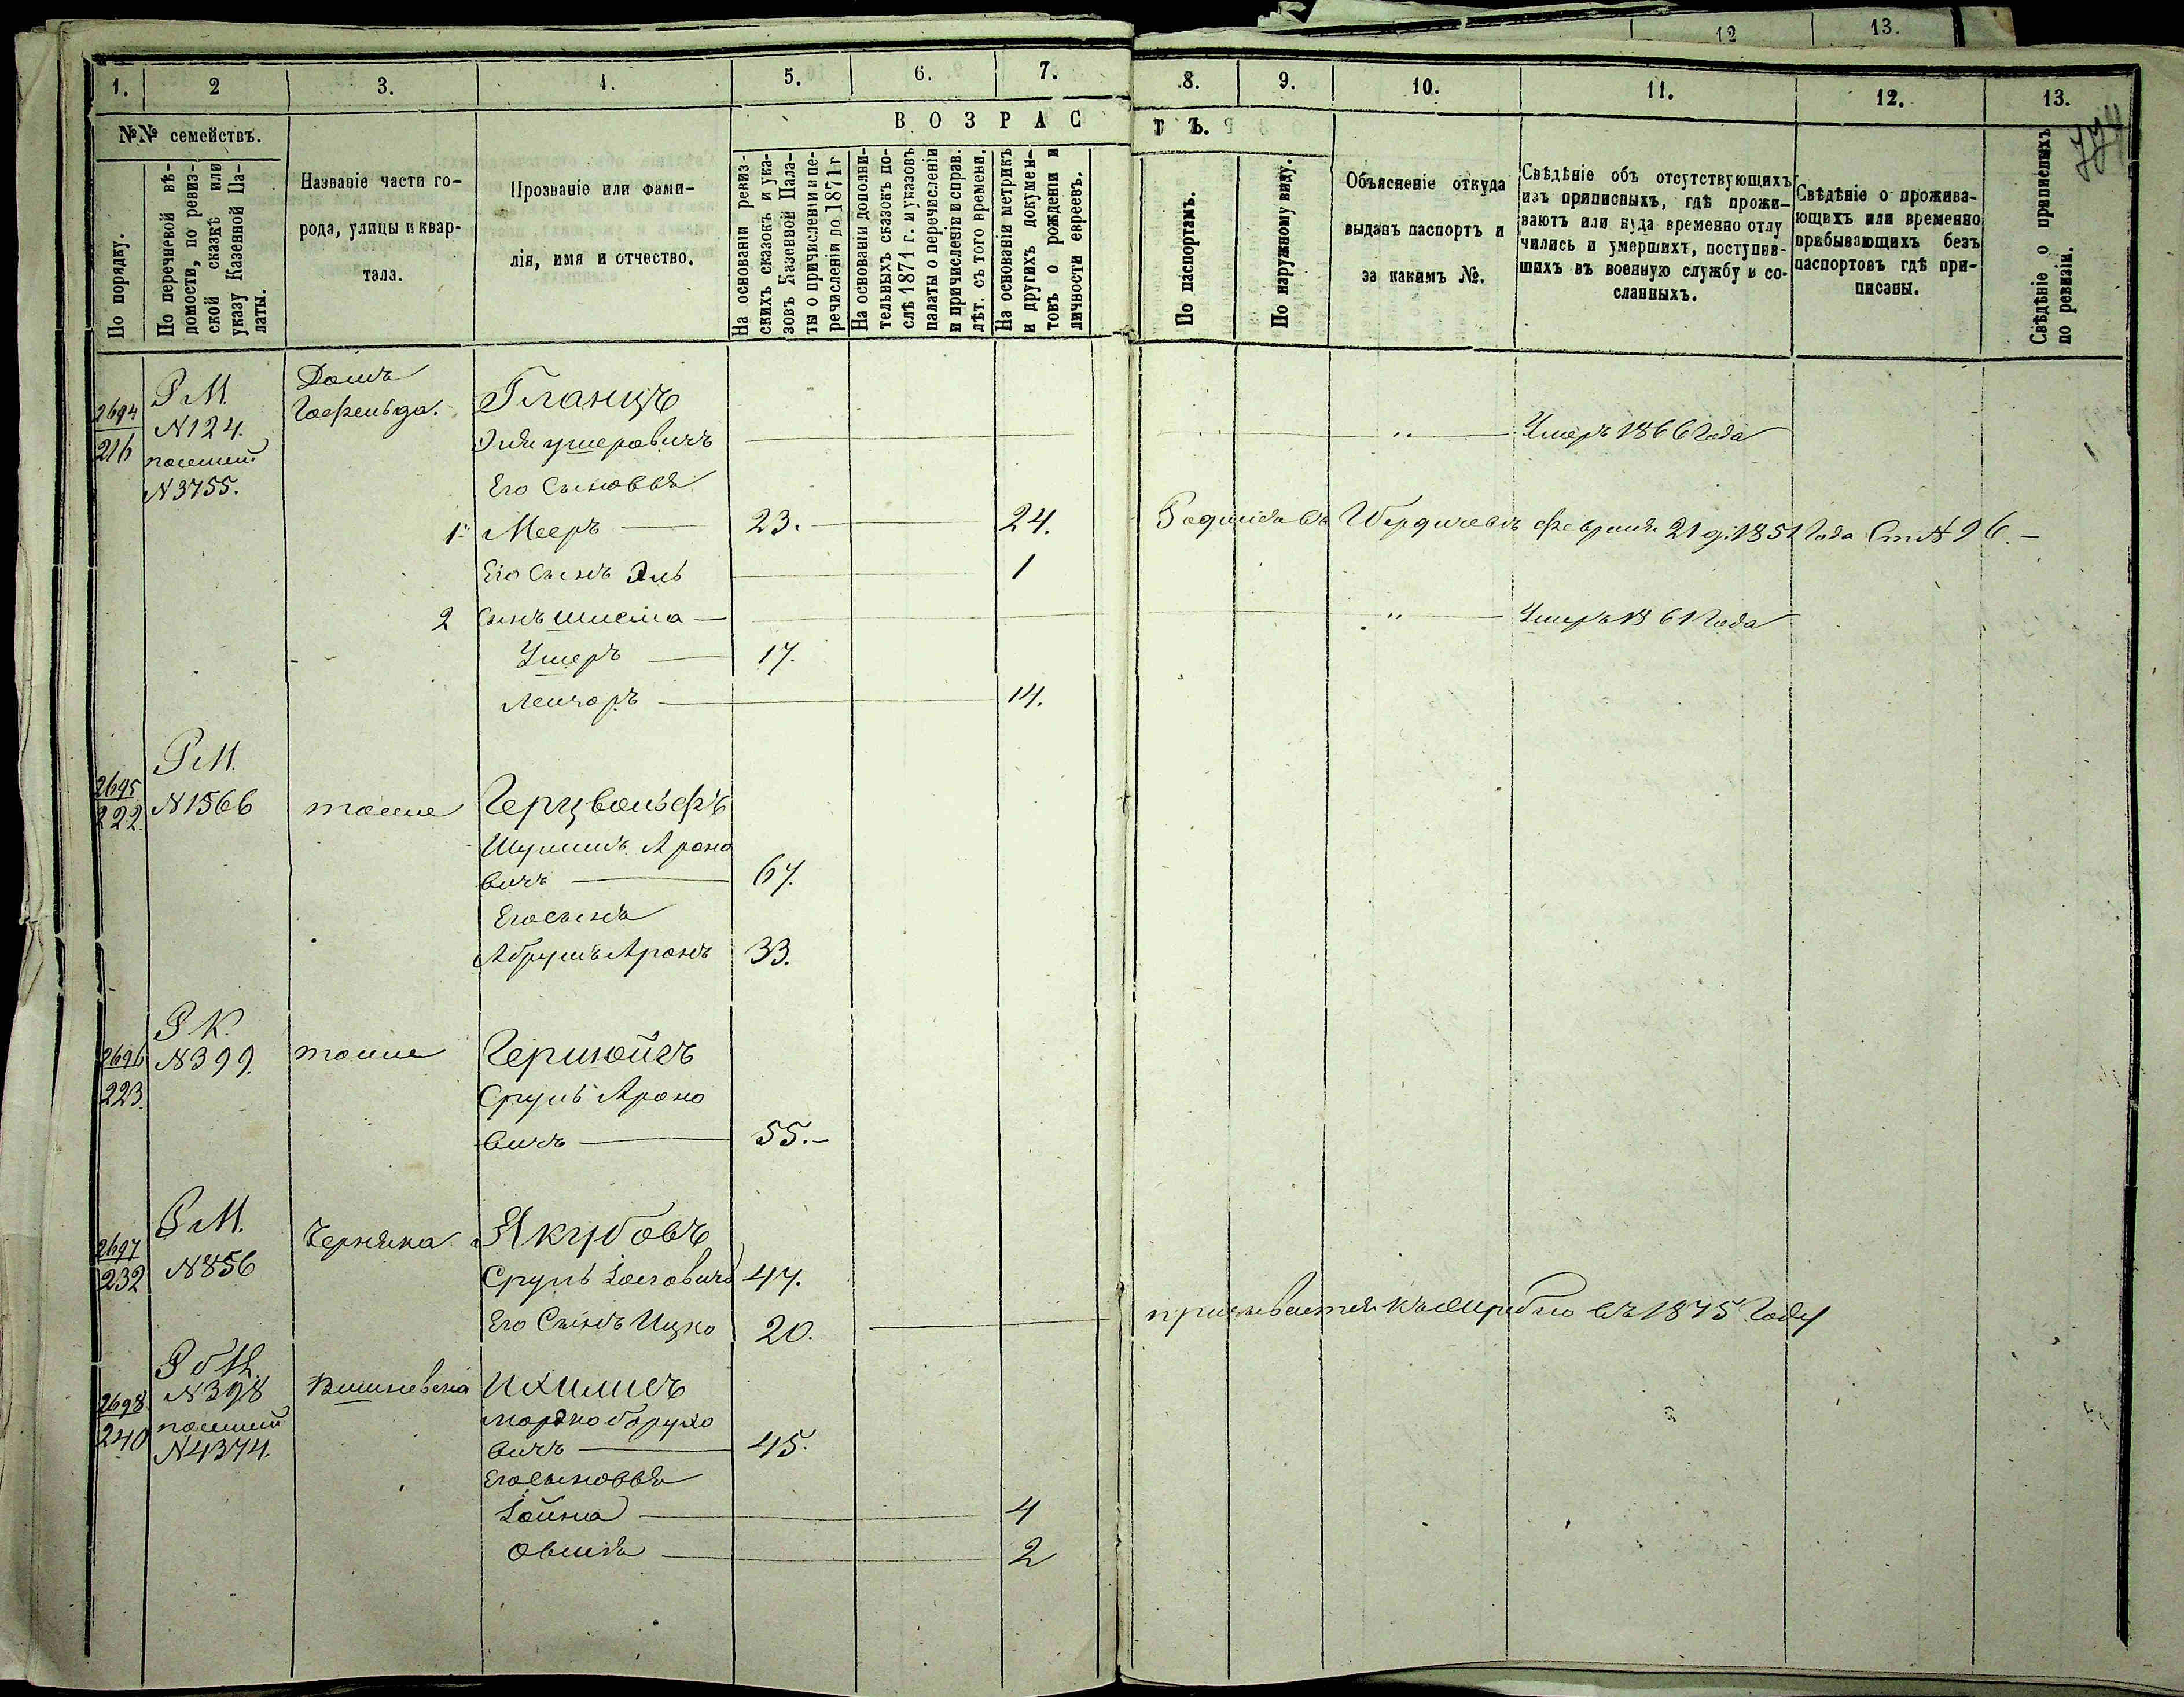 12 13.
1. 2 3. 4. 5. 6. 7. 8. 9. 10. 11. 12. 13.
№№ семействъ.
ВОЗРАСТЪ.
По порядку.
По перечневой вѣ-
домости, по ревиз-
ской сказкѣ или
указу Казенной Па-
латы.
Названіе части го-
рода, улицы и квар-
тала.
Прозваніе или фами-
лія, имя и отчество.
На основаніи ревиз-
скихъ сказокъ и ука-
зовъ Казенной Пала-
ты о причисленіи и пе-
речисленіи до 1871 г
На основаніи дополни-
тельныхъ сказокъ по-
слѣ 1871 г. и указовъ
палаты о перечисленіи
и причисленіи и справ.
лѣт. съ того времени.
На основаніи метрикъ
и другихъ докумен-
товъ о рожденіи и
личности евреевъ.
По паспортамъ.
По наружному виду.
Объясненіе откуда
выданъ паспортъ и
за какимъ №.
Свѣдѣніе объ отсутствующихъ
изъ приписныхъ, гдѣ прожи-
ваютъ или куда временно отлу
чились и умершихъ, поступив-
шихъ въ военную службу и со-
сланныхъ.
Свѣдѣніе о прожива-
ющихъ или временно
прибывающихъ безъ
паспортовъ гдѣ при-
писаны.
Свѣдѣніе о приписныхъ
по ревизіи.
2694
216
Р М.
N 124.
N 3755.
Домъ
Гланцъ
Эли Умеровичъ — " — Умеръ 1866 Года
Его Сыновья
1. Мееръ — 23. — 24. Родился въ Бердичевѣ февраля 21 д. 1851 Года Ст N 96. —
Его Сынъ Эль — 1
2 Сынъ Шлёма — " — Умеръ 1861 Года
Ушеръ — 17.
Лейзоръ — 14.
2695
222.
Р М.
N 1566
тоже
Герцвольфъ
Шулимъ Ароно
вичъ — 67.
Его сынъ
Абрумъ Аронъ 33.
2696
223.
Р К.
N 399.
тоже
Сруль Ароно
вичъ — 55. —
2697
232
Р М.
N 856
Черняка
Якубовъ
Сруль Іосовичъ 47.
Его Сынъ Ицко 20. — призывается къ жребію въ 1875 Году
2698
240
N 398
N 4374.
Ихилисъ
Мордко Борухо
вичъ — 45.
Его сыновья
Іойна — 4
Овшія — 2